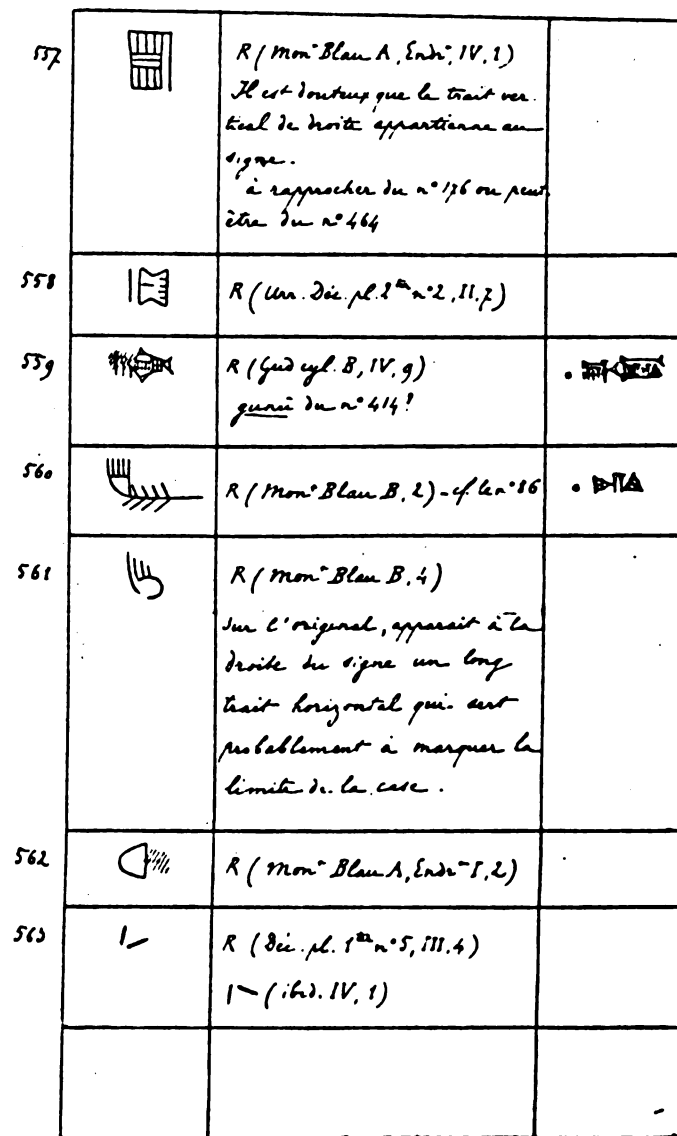 557 R (Mon^t Blau A, Endr^t, IV, 1)
Il est douteux que le trait ver-
tical de droite appartienne au
signe.
à rapprocher du n° 176 ou peut-
être du n° 464
558 R (Urn. Déc. pl. 2^bis n° 2, II, 7)
559 R (Gud cyl. B, IV, 9)
gunû du n° 414?
560 R (Mon^t Blau B, 2) - cf. le n° 86
561 R (Mon^t Blau B, 4)
Sur l'original, apparait à la
droite du signe un long
trait horizontal qui sert
probablement à marquer la
limite de la case.
562 R (Mon^t Blau A, Endr^t I, 2)
563 R (Déc. pl. 1^bis n° 5, III, 4)
(ibid. IV, 1)